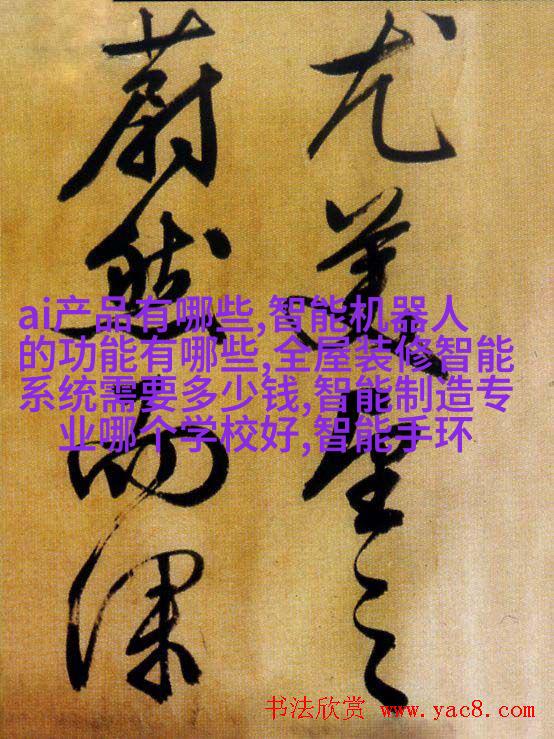 尤美望之
蔚然而深
ai产品有哪些,智能机器人
的功能有哪些,全屋装修智能
系统需要多少钱,智能制造专
业哪个学校好,智能手环
书法欣赏 www.yac8.com